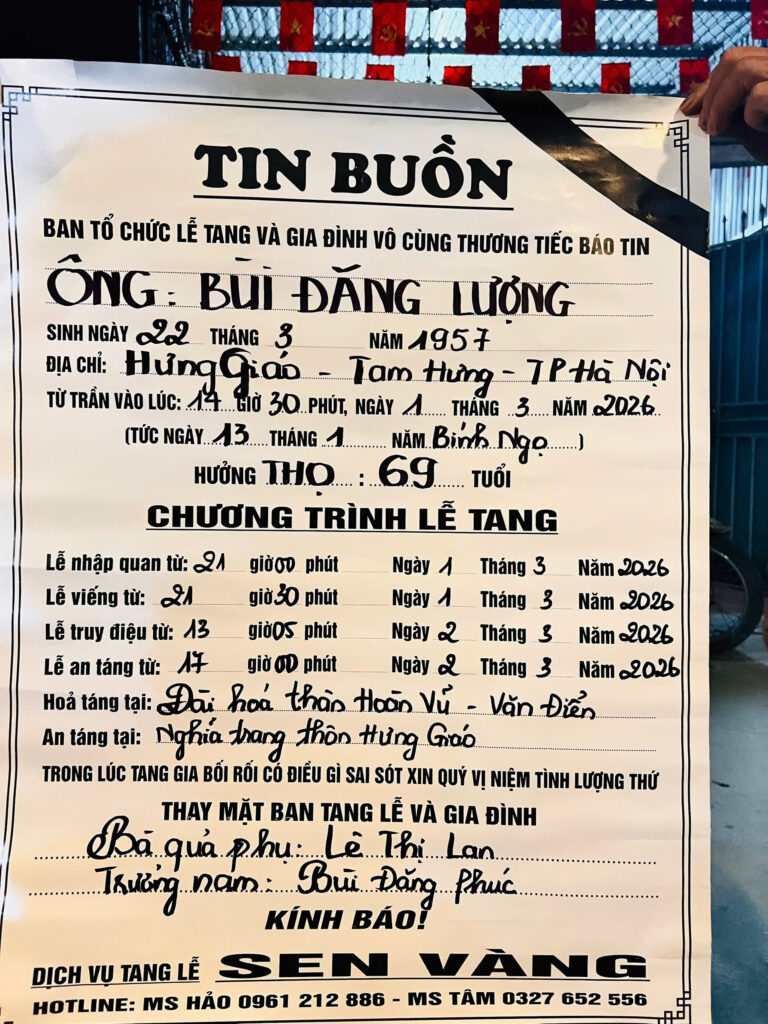 TIN BUỒN
BAN TỔ CHỨC LỄ TANG VÀ GIA ĐÌNH VÔ CÙNG THƯƠNG TIẾC BÁO TIN
ÔNG: BÙI ĐĂNG LƯỢNG
SINH NGÀY 22 THÁNG 3 NĂM 1957
ĐỊA CHỈ: Hưng Giáo - Tam Hưng - TP Hà Nội
TỪ TRẦN VÀO LÚC: 17 GIỜ 30 PHÚT, NGÀY 1 THÁNG 3 NĂM 2026
(TỨC NGÀY 13 THÁNG 1 NĂM Bính Ngọ)
HƯỞNG THỌ : 69 TUỔI
CHƯƠNG TRÌNH LỄ TANG
Lễ nhập quan từ: 21 giờ 00 phút Ngày 1 Tháng 3 Năm 2026
Lễ viếng từ: 21 giờ 30 phút Ngày 1 Tháng 3 Năm 2026
Lễ truy điệu từ: 13 giờ 05 phút Ngày 2 Tháng 3 Năm 2026
Lễ an táng từ: 17 giờ 00 phút Ngày 2 Tháng 3 Năm 2026
Hoả táng tại: Đài hoá thân Hoàn Vũ - Văn Điển
An táng tại: Nghĩa trang thôn Hưng Giáo
TRONG LÚC TANG GIA BỐI RỐI CÓ ĐIỀU GÌ SAI SÓT XIN QUÝ VỊ NIỆM TÌNH LƯỢNG THỨ
THAY MẶT BAN TANG LỄ VÀ GIA ĐÌNH
Bà quả phụ: Lê Thị Lan
Trưởng nam: Bùi Đăng Phúc
KÍNH BÁO!
DỊCH VỤ TANG LỄ SEN VÀNG
HOTLINE: MS HẢO 0961 212 886 - MS TÂM 0327 652 556